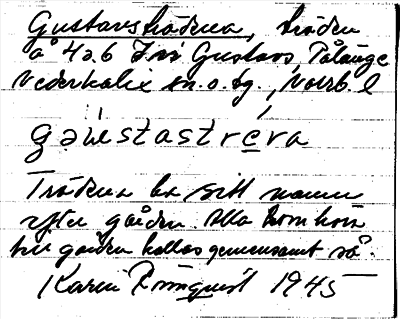 Gustavsträdena, träden
å 4a.6 Fri Gustavs, Pålänge
Nederkalix sn. o. tg., Norrb. l
gəʉstastrę́va
Trädena ha sitt namn
efter gården. Alla som hör
till gården kallas gemensamt så.
Karin Rönnquist 1945